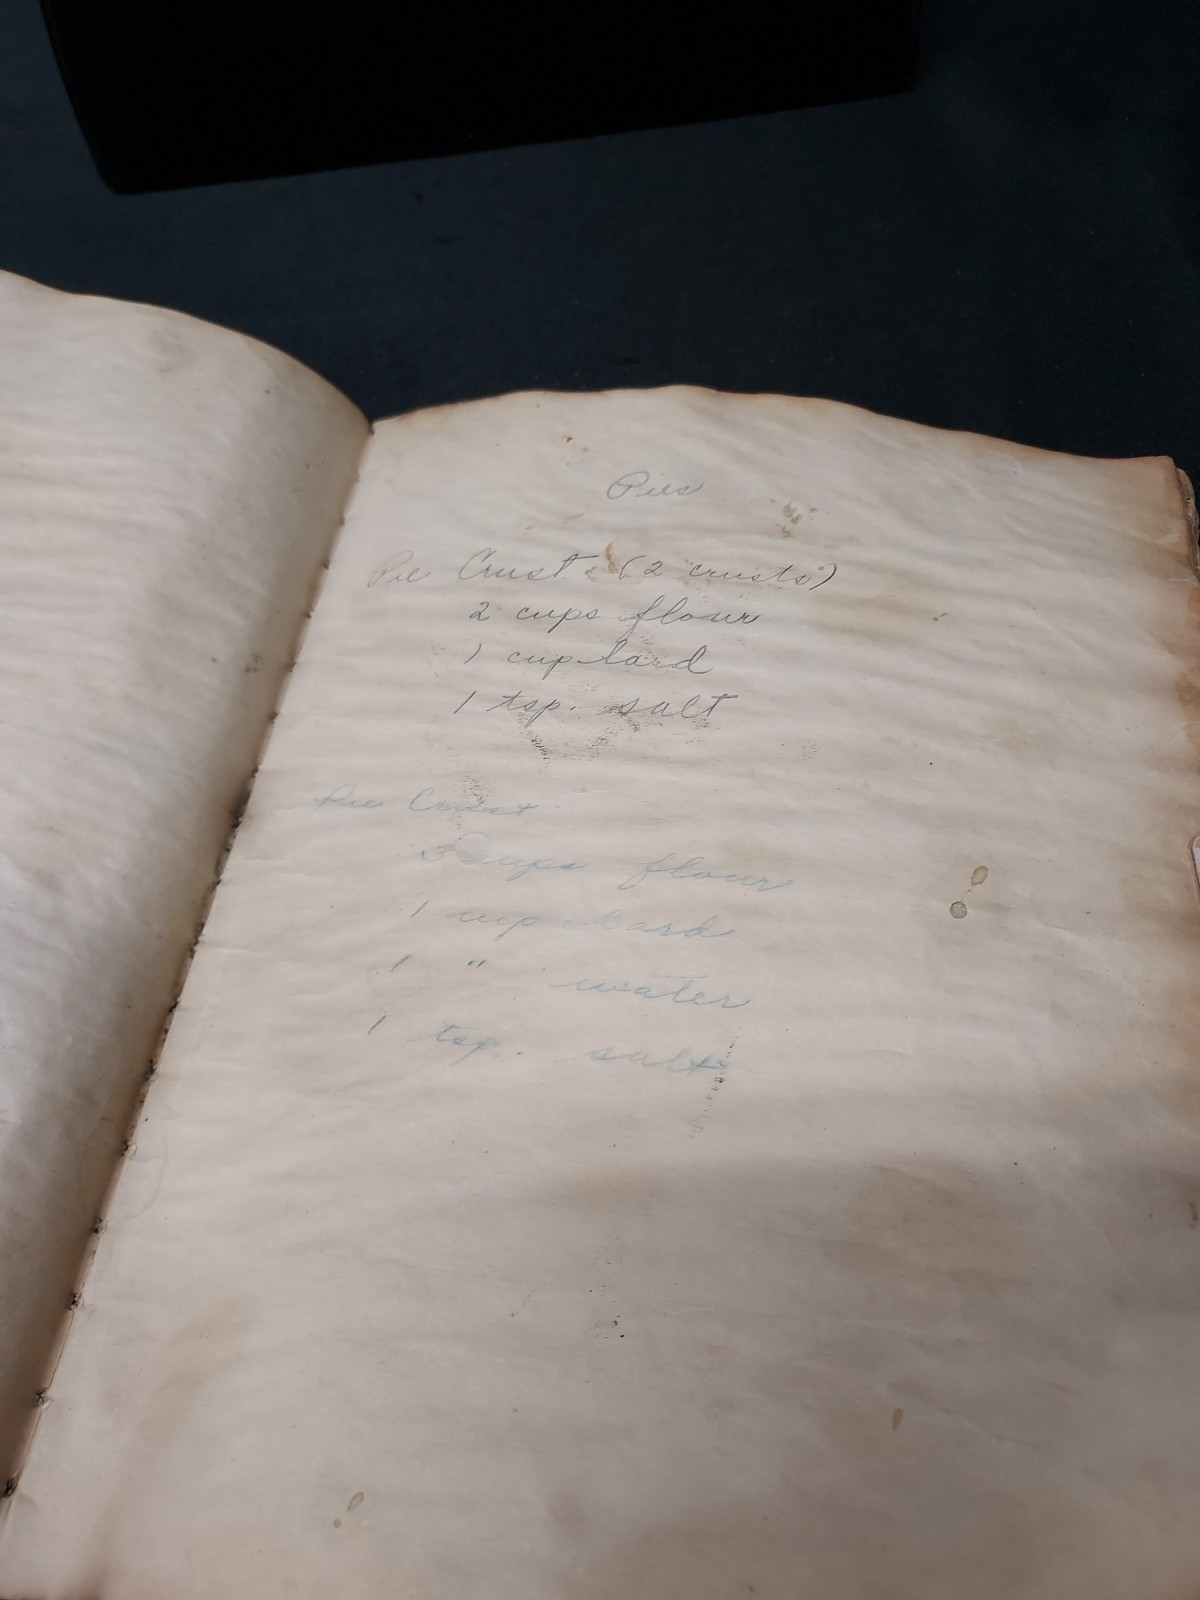 Pies
Pie Crust. (2 crusts)
2 cups flour
1 cup lard
1 tsp. salt
Pie Crust
cups flour
1 cup lard
1 " water
1 tsp. salt